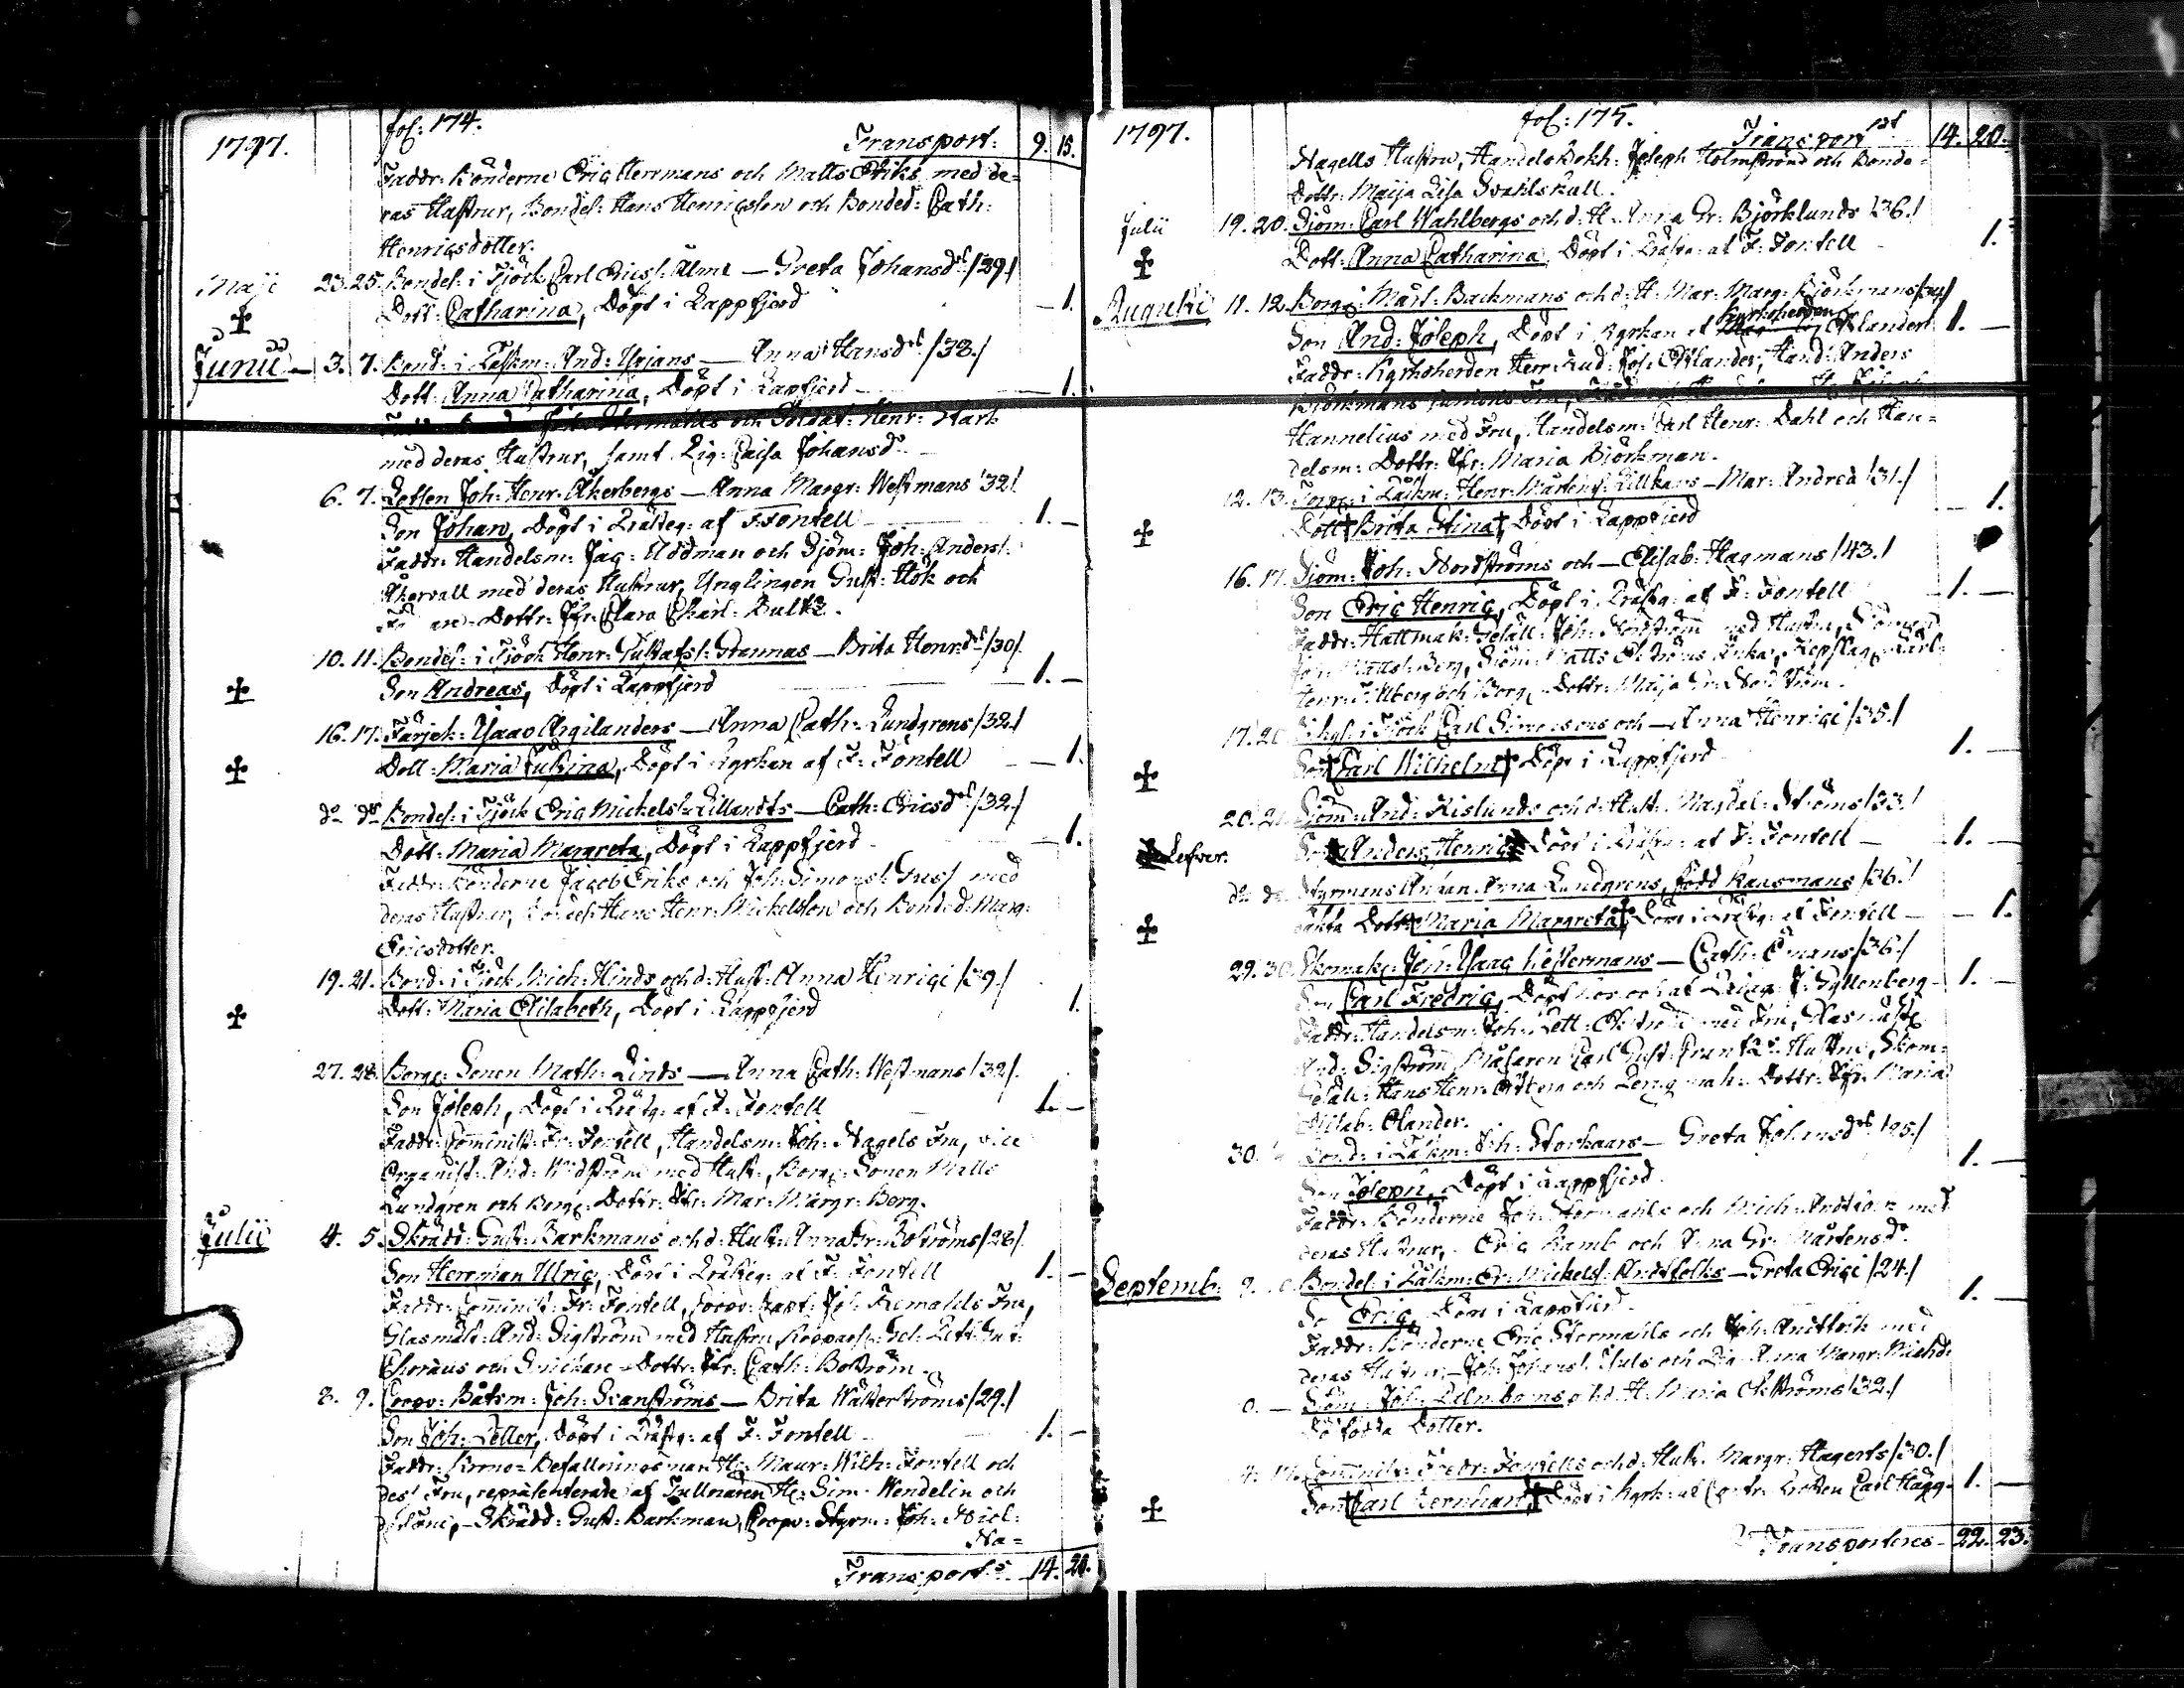 1797. fol: 174. Transport: 9. 15.
Faddr: Bönderne Eric Herrmans och Matts Eriks med de=
ras Hustrur, Bondes: Hans Henricsson och Bonded: Cath:
Henrigsdotter.
Maji 23. 25. Bondes: i Tjöck Carl Erics: Älms — Greta Johansdr /29./
Dott: Catharina, Döpt i Lappfjerd — 1.
Junii — 3. 7. Bond: i Låskm: And: Yrjans — Anna Hansdr /38./
Dott: Anna Catharina, Döpt i Lapfjerd — 1.
och Soldat: Henr: Stark
med deras Hustrur, samt Pig: Caisa Johansdr
6. 7. Lotsen Joh: Henr: Åkerbergs — Anna Margr: Westmans /32/
Son Johan, Döpt i Kråsteg: af F. Fontell 1. —
Faddr: Handelsm: Jac: Uddman och Sjöm: Joh: Anders:
Åkervall med deras Hustrur, Ynglingen Gust: Hök och
Dottr: Jfr: Clara Charl: Bultz.
10. 11. Bondes: i Tjöck Henr: Gustafs: Grannas — Brita Henr:dr /30/
Son Andreas, Döpt i Lappfjerd 1. —
16. 17. Färjek: Isaac Argilanders — Anna Cath: Lundgrens /32./
Dott: Maria Justina, Döpt i Kyrkan af F: Fontell — 1.
do do Bondes: i Tjöck Eric Mickels: Lillandts — Cath: Ericsdr /32./
Dott: Maria Margreta, Döpt i Lappfjerd — 1.
Faddr: Bönderne Jacob Eriks och Joh: Simons: Gus med
deras Hustrur, Bondes: Hans Henr: Mickelsson och Bonded: Marg:
Ericsdotter.
19. 21. Bond: i Tjöck Mich: Hinds och d: Hust: Anna Henrici /39./
Dott: Maria Elisabeth, Döpt i Lappfjerd 1.
27. 28. Borge: Sonen Math: Linds — Anna Cath: Westmans /32/
Son Joseph, Döpt i Kråstg: af F: Fontell 1. —
Faddr: Comminist: Fr: Fontell, Handelsm: Joh: Nagels Fru, vice
Organist: And: Widström med Hust:, Borge: Sonen Matts
Lundgren och Borge: Dottr: Jfr: Mar: Margr: Berg.
Julii 4. 5. Skrädd: Gust: Barkmans och d: Hust: Anna Gr: Boströms /28/
Son Herrman Ulric, Döpt i Kråsteg: af F: Fontell 1. —
Faddr: Comminist: Fr: Fontell, Coopv: Capt: Joh: Remahls Fru,
Glasmäst: And: Sigström med Hustru,
Choræus och Snickare-Dottr: Jfr: Cath: Boström.
8. 9. Coopv: Båtsm: Joh: Svanströms — Brita Wätterströms /29./
Son Joh: Petter, Döpt i Kråstg: af F: Fontell 1. —
Faddr: Krono-Befallningsman Hr: Maur: Wilh: Fontell och
des Fru, representerade af Tullnären Hr: Sim: Wendelin och
Skrädd: Gust: Barkman, Coopv: Styrm: Joh: Nicl:
Na=
Transports 14. 20.
1797. fol: 175. Transport 14. 20.
Nagells Hustru, Handels Bokh: Joseph Holmström och Bonde-
Dottr: Maija Lisa Svahlskull.
Julii 19. 20. Sjöm: Carl Wahlbergs och d: H. Anna Gr: Björklunds /36./
Dott: Anna Catharina, Döpt i Kråstg: af F: Fontell 1.
Augusti 11. 12. Borg: Mårt: Backmans och d: H: Mar: Marg: Björkmans
Son And: Joseph, Döpt i Kyrkan af Kyrkoherden Estlander 1. —
Faddr: Kyrkoherden Herr Lud: Joh: Estlander, Hand: Anders
Björkmans
Hannelius med Fru, Handelsm: Carl Henr: Dahl och Han=
delsm: Dottr: Jfr: Maria Björkman.
12. 13. Torpe: i Låskm: Henr: Mårtens: Lillkars — Mar: Andreæ /31./
Dott: Brita Stina, Döpt i Lappfjerd 1.
16. 17. Sjöm: Joh: Nordströms och — Elisab: Hagmans /43./
Son Eric Henric, Döpt i Kråstg: af F: Fontell 1. —
Faddr: Hattmak: Gesäll: Joh: Nordström med Hustru,
Joh: Matts: Berg, Sjöm: Matts Enka, Repslag: Carl
Henr: Tillberg och Borg: Dottr: Maija Gr: Nordström.
17. 20. i Tjöck Carl Simonsons och — Anna Henrici /35./
Son Carl Wilhelm, Döpt i Lappfjerd 1. —
20. 21. Sjöm: And: Kislunds och d: Hust: Magdal: Ströms /33./
Lefver. Son Anders Henric, Döpt i Kråstg: af F: Fontell — 1. —
do do Styrmans Enkan Anna Lundgrens, född Kaasmans /36./
Dott: Maria Margreta, Döpt i Kråstg: af Fontell — 1.
29. 30. Skomak: Joh: Isaac Westermans — Cath: Ömans /36./
Son Carl Fredric, Döpt hos och af F: Gyllenberg 1. —
Faddr: Handelsm: Joh: Pett: med Fru, Glasmäst:
And: Sigström, Målaren Carl Gust: Hustru, Skom=
Gesäll: Hans Henr: och Dottr: Jfr: Maria
Elisab: Olander.
30. Bond: i Låskm: Joh: Storkaars — Greta Johansdr
Son Joseph, Döpt i Lappfjerd. 1. —
Faddr: Bönderne Joh: Stormahls och Mich: med
deras Hustrur, Eric Ramb och Anna Gr: Mårtensdr
Septemb: 9. Bondes: i Låskm: Er: Mickels: Andtfolks — Greta Erici /24./
Eric, Döpt i Lappfjerd. 1. —
Faddr: Bönderne Eric Stormahls och Joh: Andtfolk med
deras Hustrur, Joh: Johans: och Pig: Anna Margr: Michdr
Sjöm: Joh: och d: H: Maria Ekströms /32./
Dödfödda Dotter.
Comminist: Fredr: Fontells och d: Hust: Margr: Hagerts /30./
Son Carl Bernhart, Döpt i Kyrk: af Carl Hägg. 1. —
Transporteres 22. 23.